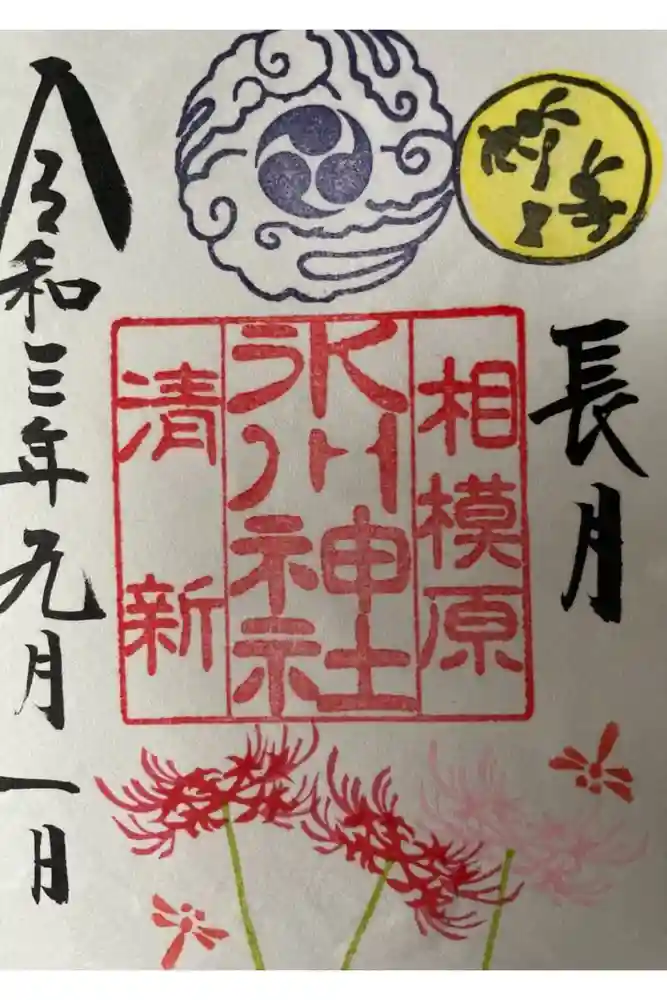 長月
相模原
氷川神社
清新
令和三年九月一日